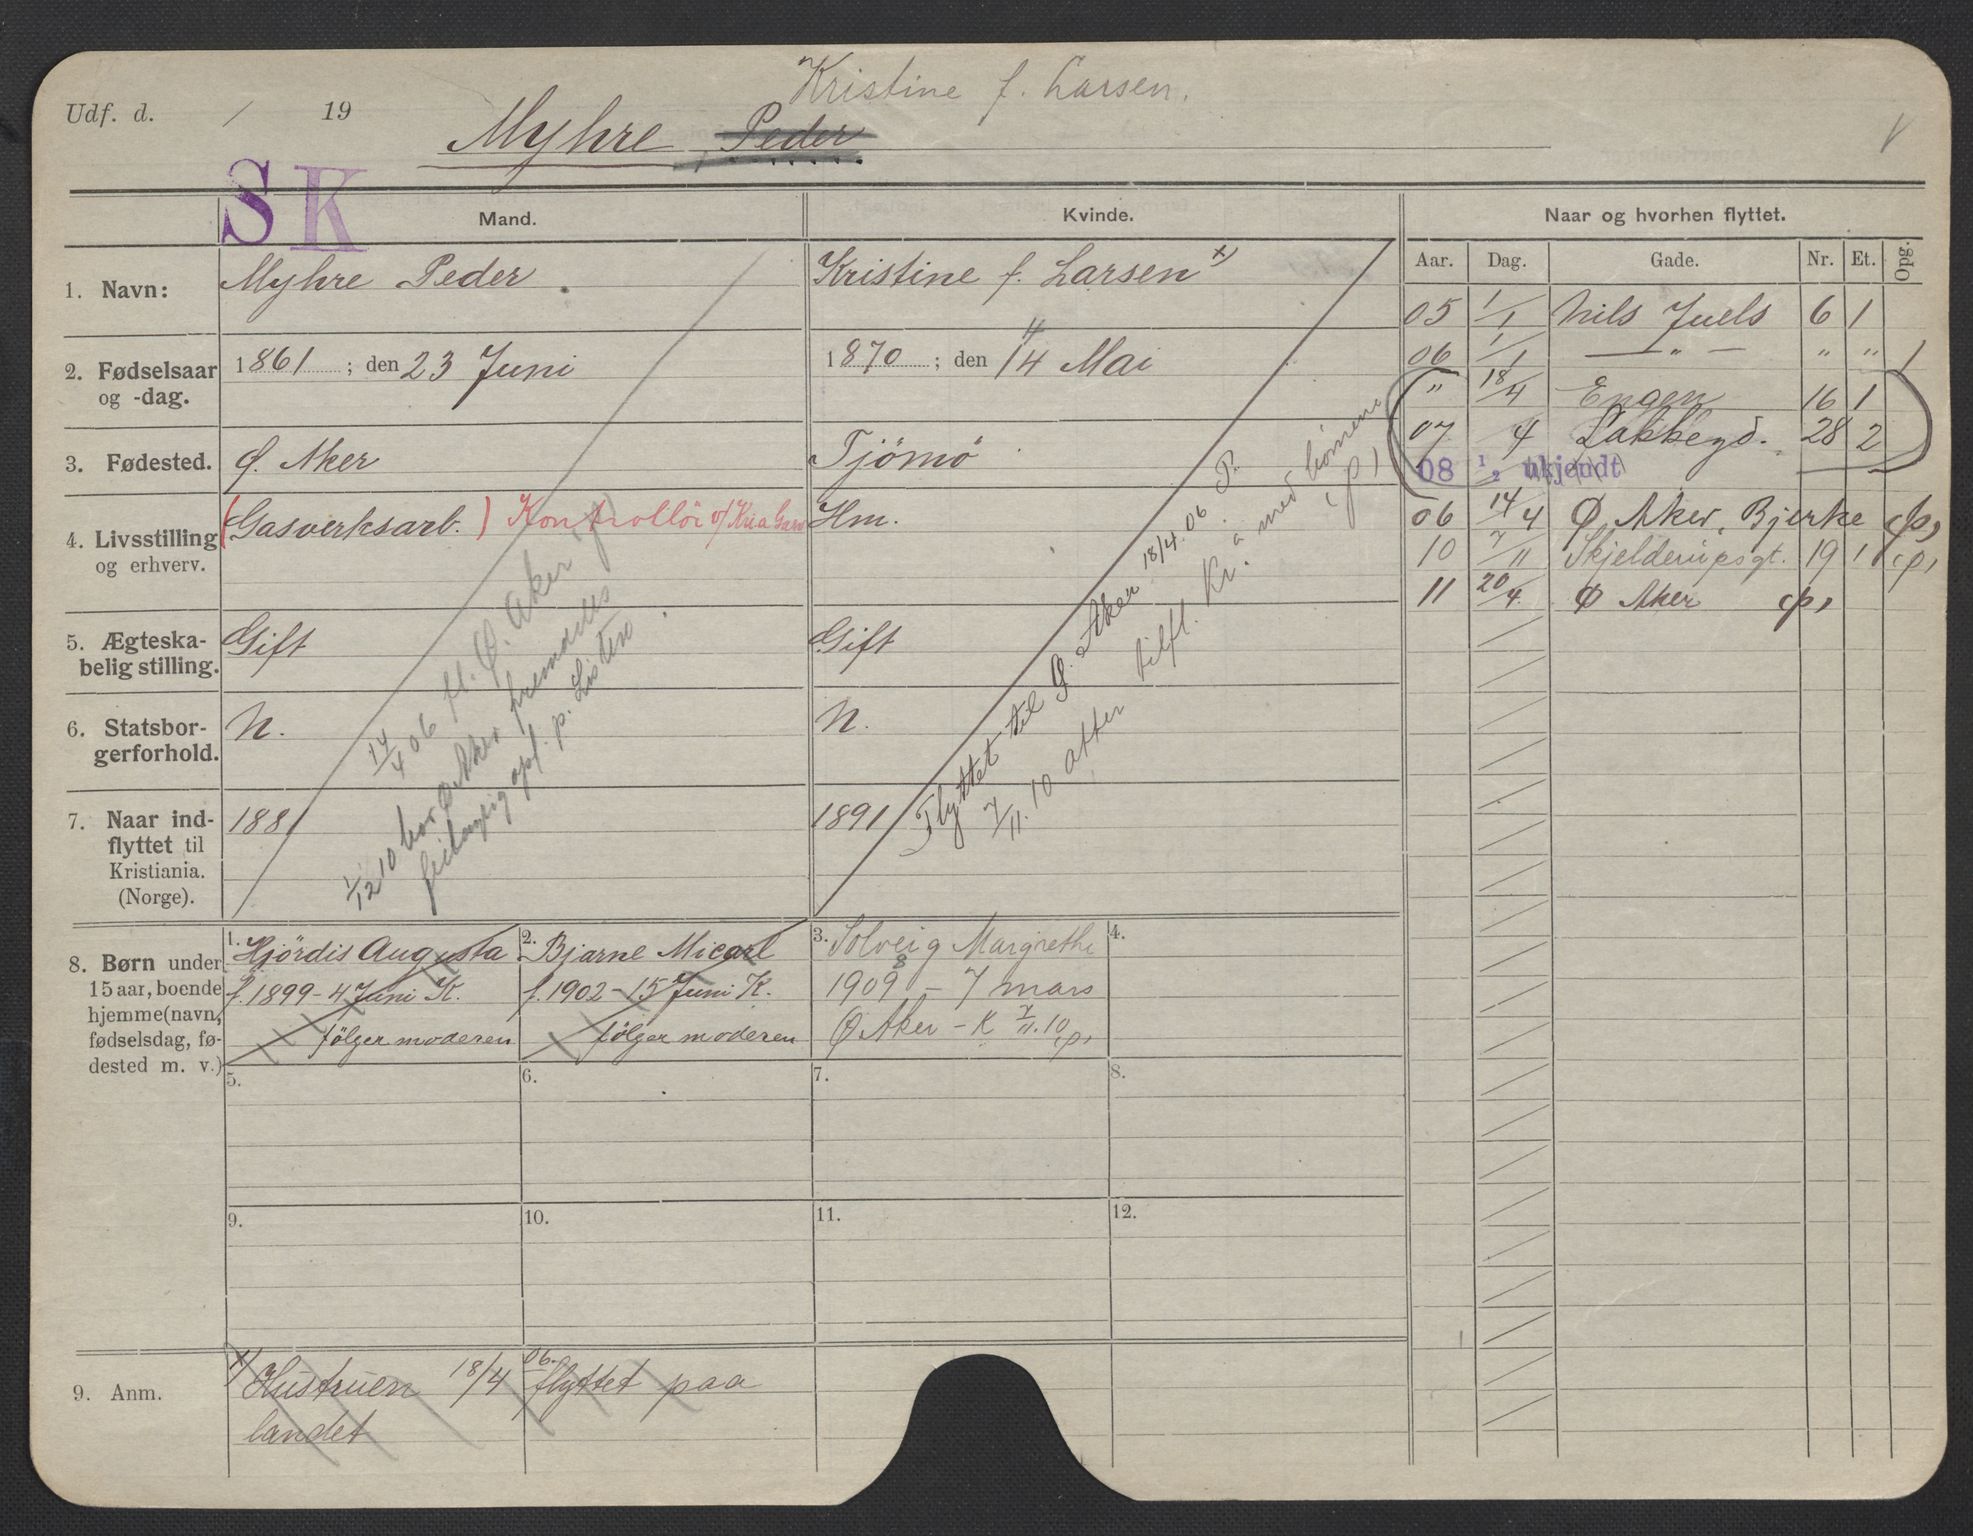 Kristine f. Larsen.
Udf. d. / 19
Myhre, Peder
SK
Mand.
Kvinde.
Naar og hvorhen flyttet.
Aar. Dag. Gade. Nr. Et. Opg.
1. Navn:
Myhre Peder
Kristine f. Larsen x)
2. Fødselsaar og -dag.
1861 ; den 23 Juni
1870 ; den 14 Mai
4
3. Fødested.
Ø. Aker
Tjömö
4. Livsstilling og erhverv.
(Gasverksarb.) Kontrollör v/ Kria Gasv
Hm.
5. Ægteskabelig stilling.
Gift
Gift
6. Statsborgerforhold.
N.
N.
7. Naar indflyttet til Kristiania. (Norge).
1881
1891
14/4 06 fl. Ø. Aker
1/12 10 bor Ø Aker fremdeles
feilagtig opf. p. Listen
Flyttet til Ø. Aker 18/4.06 P.
7/11.10 atter tilfl. Kr.a med börnene
(p)
05 1/1 Nils Juels 6 1
06 1/1 — " — " "
" 18/4 Engen 16 1
07 4 Lakkegd. 28 2
08 1/2 ukjendt
06 14/4 Ø Aker, Bjerke (p)
10 7/11 Skjelderupsgt. 19 1 (p)
11 20/4 Ø Aker (p)
8. Børn under 15 aar, boende hjemme (navn, fødselsdag, fødested m. v.)
1. Hjördis Augusta
f. 1899 - 4 Juni K.
fölger moderen
2. Bjarne Micarl
f. 1902 - 15 Juni K.
fölger moderen
3. Solveig Margrethe
8
1909 - 7 mars
Ø Aker - K 7/11.10
(p)
4.
5.
6.
7.
8.
9.
10.
11.
12.
9. Anm.
x) Hustruen 18/4 06. flyttet paa
landet